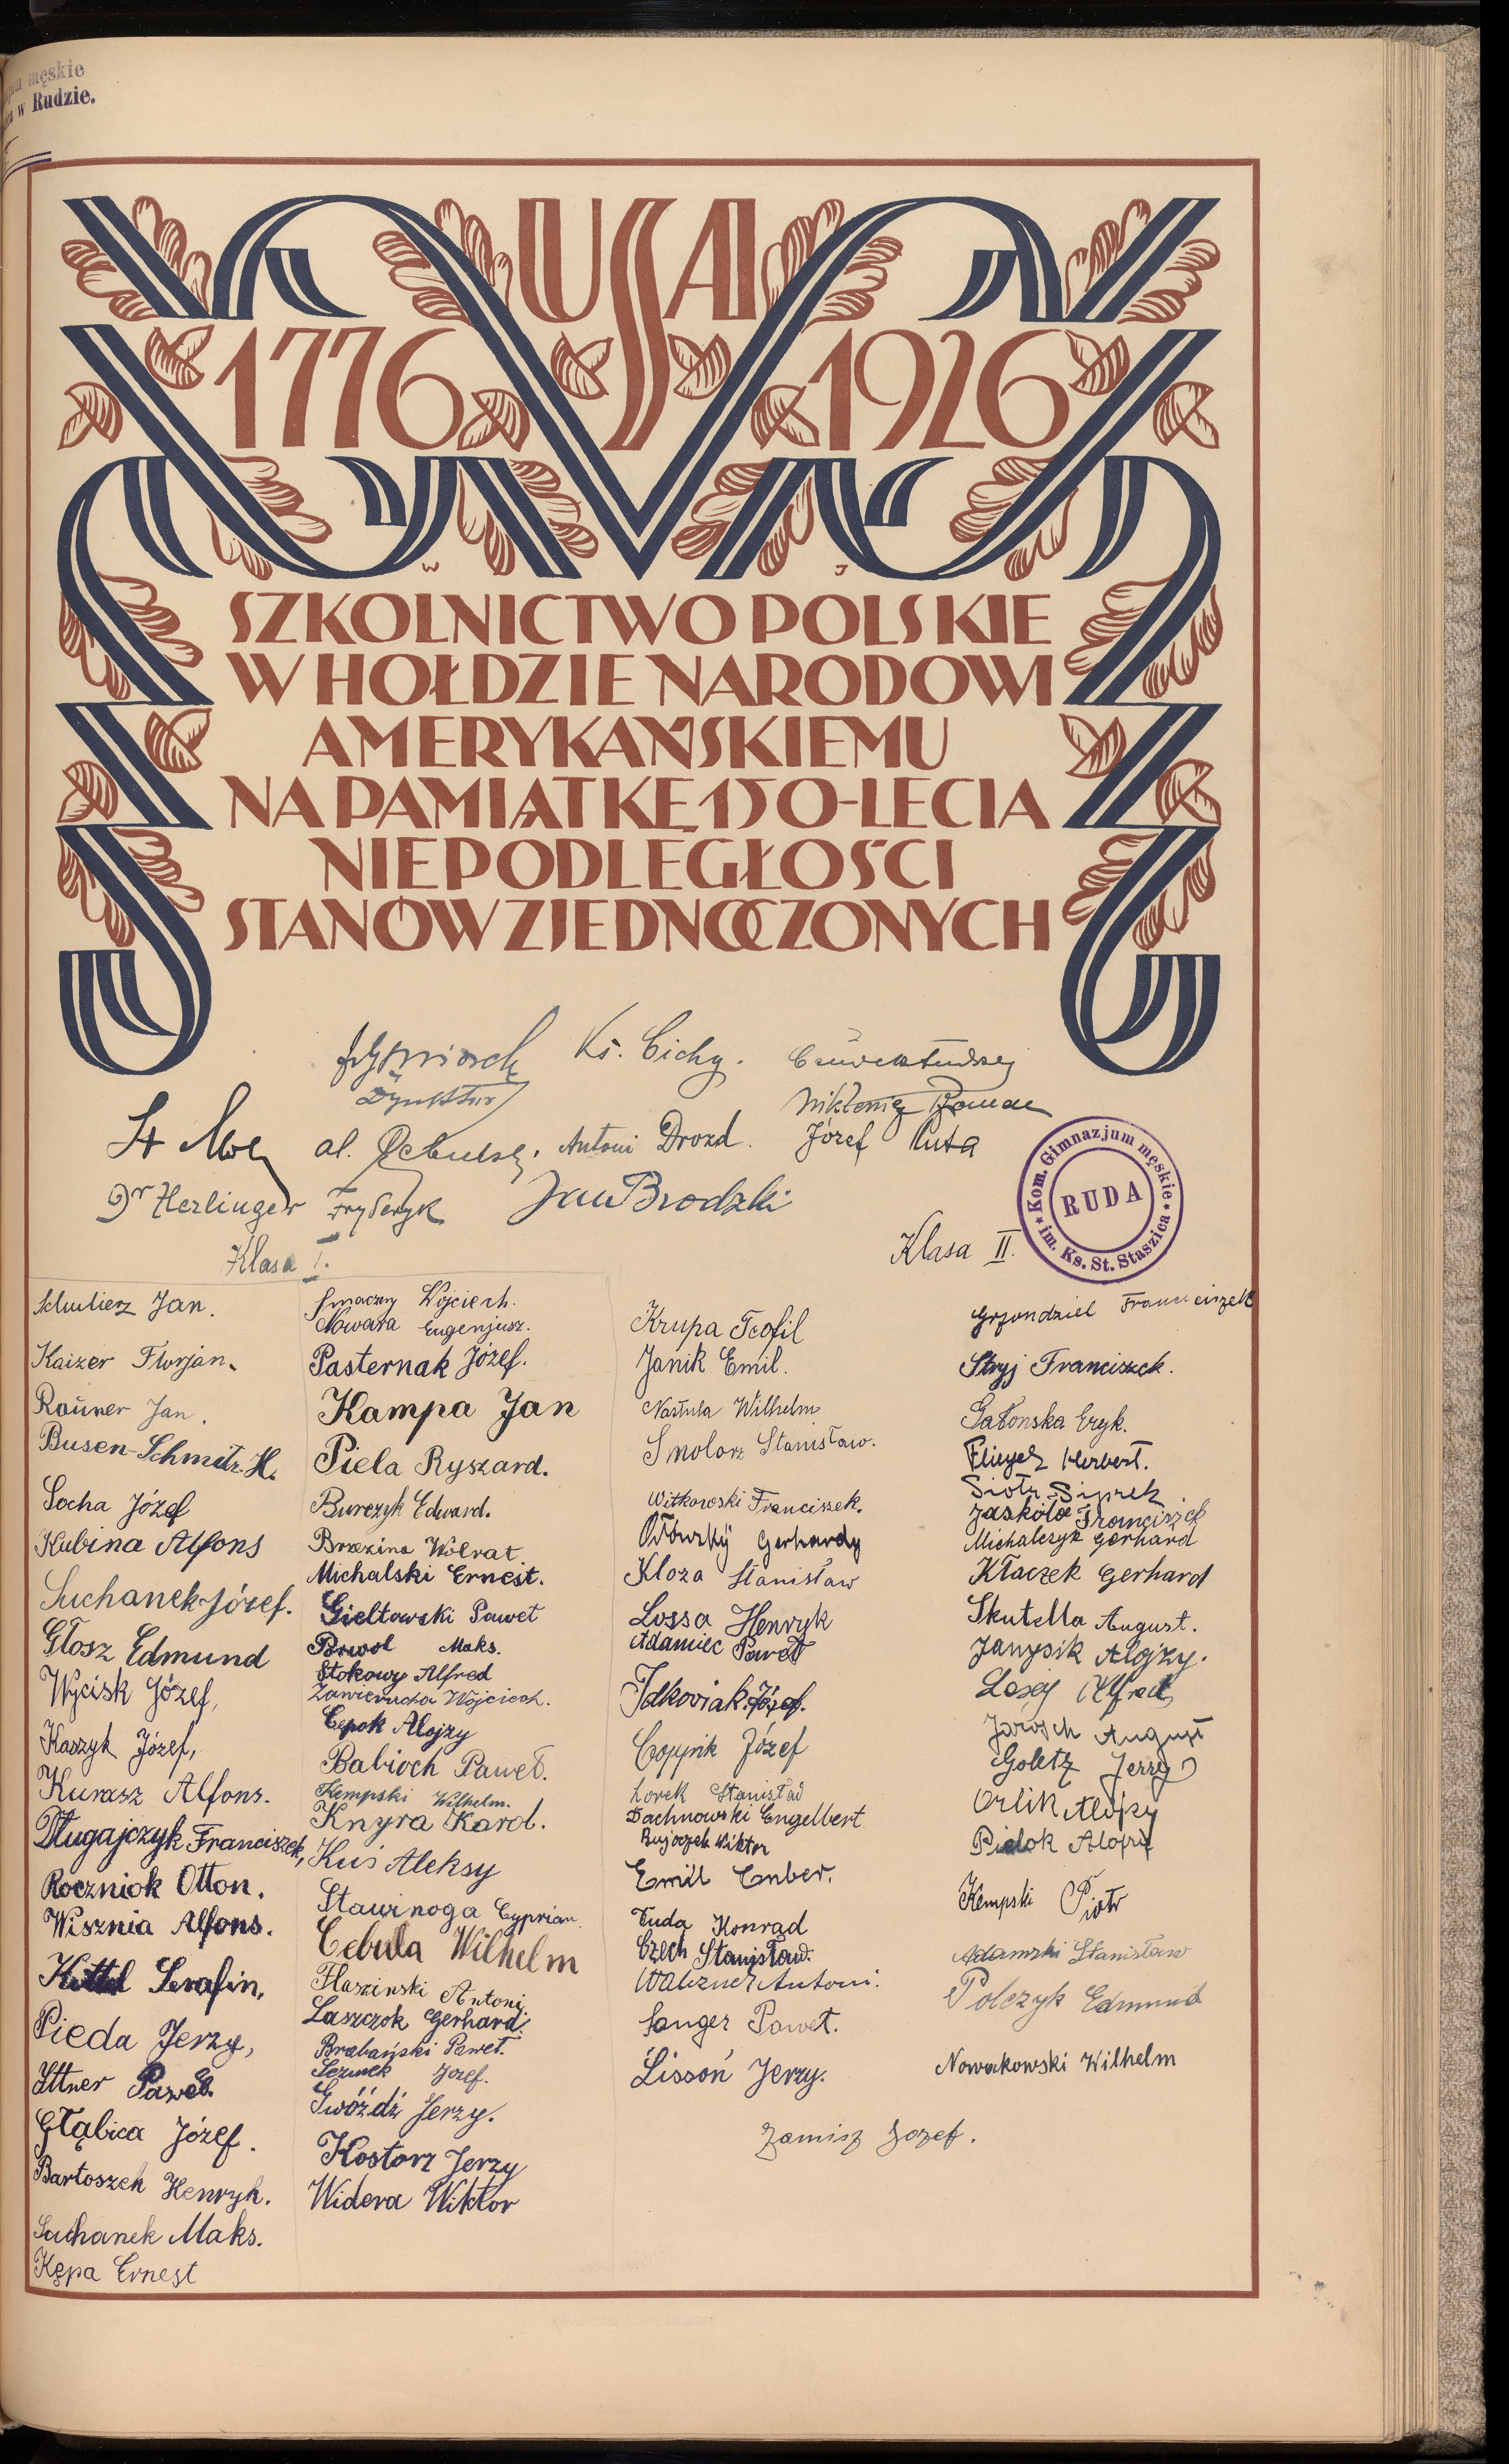 męskie
w Rudzie.
USA
1776 1926
W J
SZKOLNICTWO POLSKIE
W HOŁDZIE NARODOWI
AMERYKAŃSKIEMU
NA PAMIĄTKĘ 150-LECIA
NIEPODLEGŁOŚCI
STANÓW ZJEDNOCZONYCH
Ks. Cichy.
Dyrektor
Roman
al. Antoni Drozd. Józef Puta
Dr Herlinger Fryderyk Jan Brodzki
Kom. Gimnazjum męskie
im. Ks. St. Staszica
RUDA
Klasa I.
Jan.
Kaizer Florjan.
Rauner Jan.
Busen-Schmitz H.
Socha Józef
Kubina Alfons
Suchanek Józef.
Głosz Edmund
Wycisk Józef,
Kaszyk Józef,
Kurasz Alfons.
Długajczyk Franciszek,
Roczniok Otton.
Wisznia Alfons.
Kottel Serafin,
Pieda Jerzy,
Ittner Paweł
Głąbica Józef.
Bartoszek Henryk.
Suchanek Maks.
Kępa Ernest
Smaczny Wojciech.
Nowara Eugenjusz.
Pasternak Józef.
Kampa Jan
Piela Ryszard.
Burczyk Edward.
Brzezina Wolrat.
Michalski Ernest.
Gieltowski Paweł
Powol Maks.
Stokowy Alfred
Zawierucha Wojciech.
Cepok Alojzy
Babioch Paweł.
Kempski Wilhelm.
Knyra Karol.
Kuś Aleksy
Stawinoga Cyprian.
Cebula Wilhelm
Flaszinski Antoni.
Laszczok Gerhard.
Brabański Paweł.
Józef.
Gwóźdź Jerzy.
Kostorz Jerzy
Widera Wiktor
Klasa II.
Krupa Teofil
Janik Emil.
Nastula Wilhelm
Smolorz Stanisław.
Witkowski Franciszek.
Gerhardy
Kloza Stanisław
Lossa Henryk
Adamiec Paweł
Idkowiak Józef.
Copik Józef
Lorek Stanisław
Dachnowski Engelbert
Bujoczek Wiktor
Emil Cuber.
Fuda Konrad
Czech Stanisław.
Walzner Antoni.
Sanger Paweł.
Lissoń Jerzy.
Zamisz Jozef.
Grzondziel Franciszek
Stryj Franciszek.
Gałonska Eryk.
Flieger Herbert.
Piotr Siprek
Jaskóła Franciszek
Michalczyk Gerhard
Kłaczek Gerhard
Skutella August.
Janysik Alojzy.
Losoj Alfred
Jarosch August
Goletz Jerzy
Orlik Alojzy
Pielok Alojzy
Kempski Piotr
Adamski Stanisław
Polczyk Edmund
Nowakowski Wilhelm